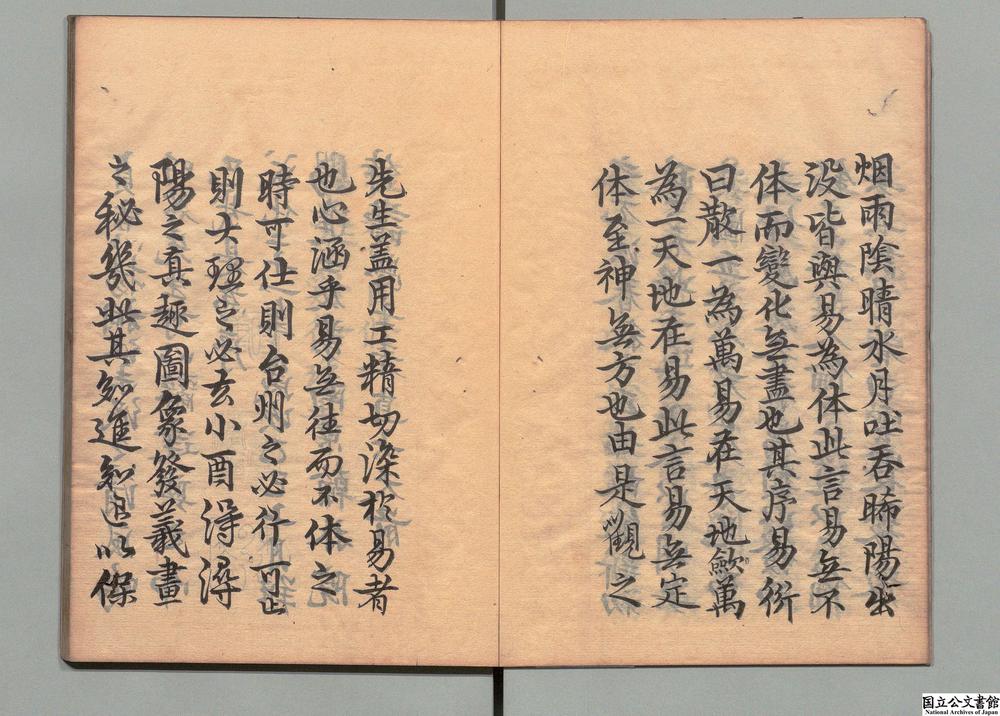 烟雨陰晴水月吐吞晞陽出
没皆與易為体此言易無不
体而變化無盡也其序易衍
曰散一為萬易在天地歛萬
為一天地在易此言易無定
体至神無方也由是以觀之
先生盖用工精切深於易者
也心涵乎易無往而不体之
時可仕則台州之必行可止
則大理之必去小酉得潯
陽之真趣圖象發羲畫
之秘幾此其知進知退以保
国立公文書館
National Archives of Japan